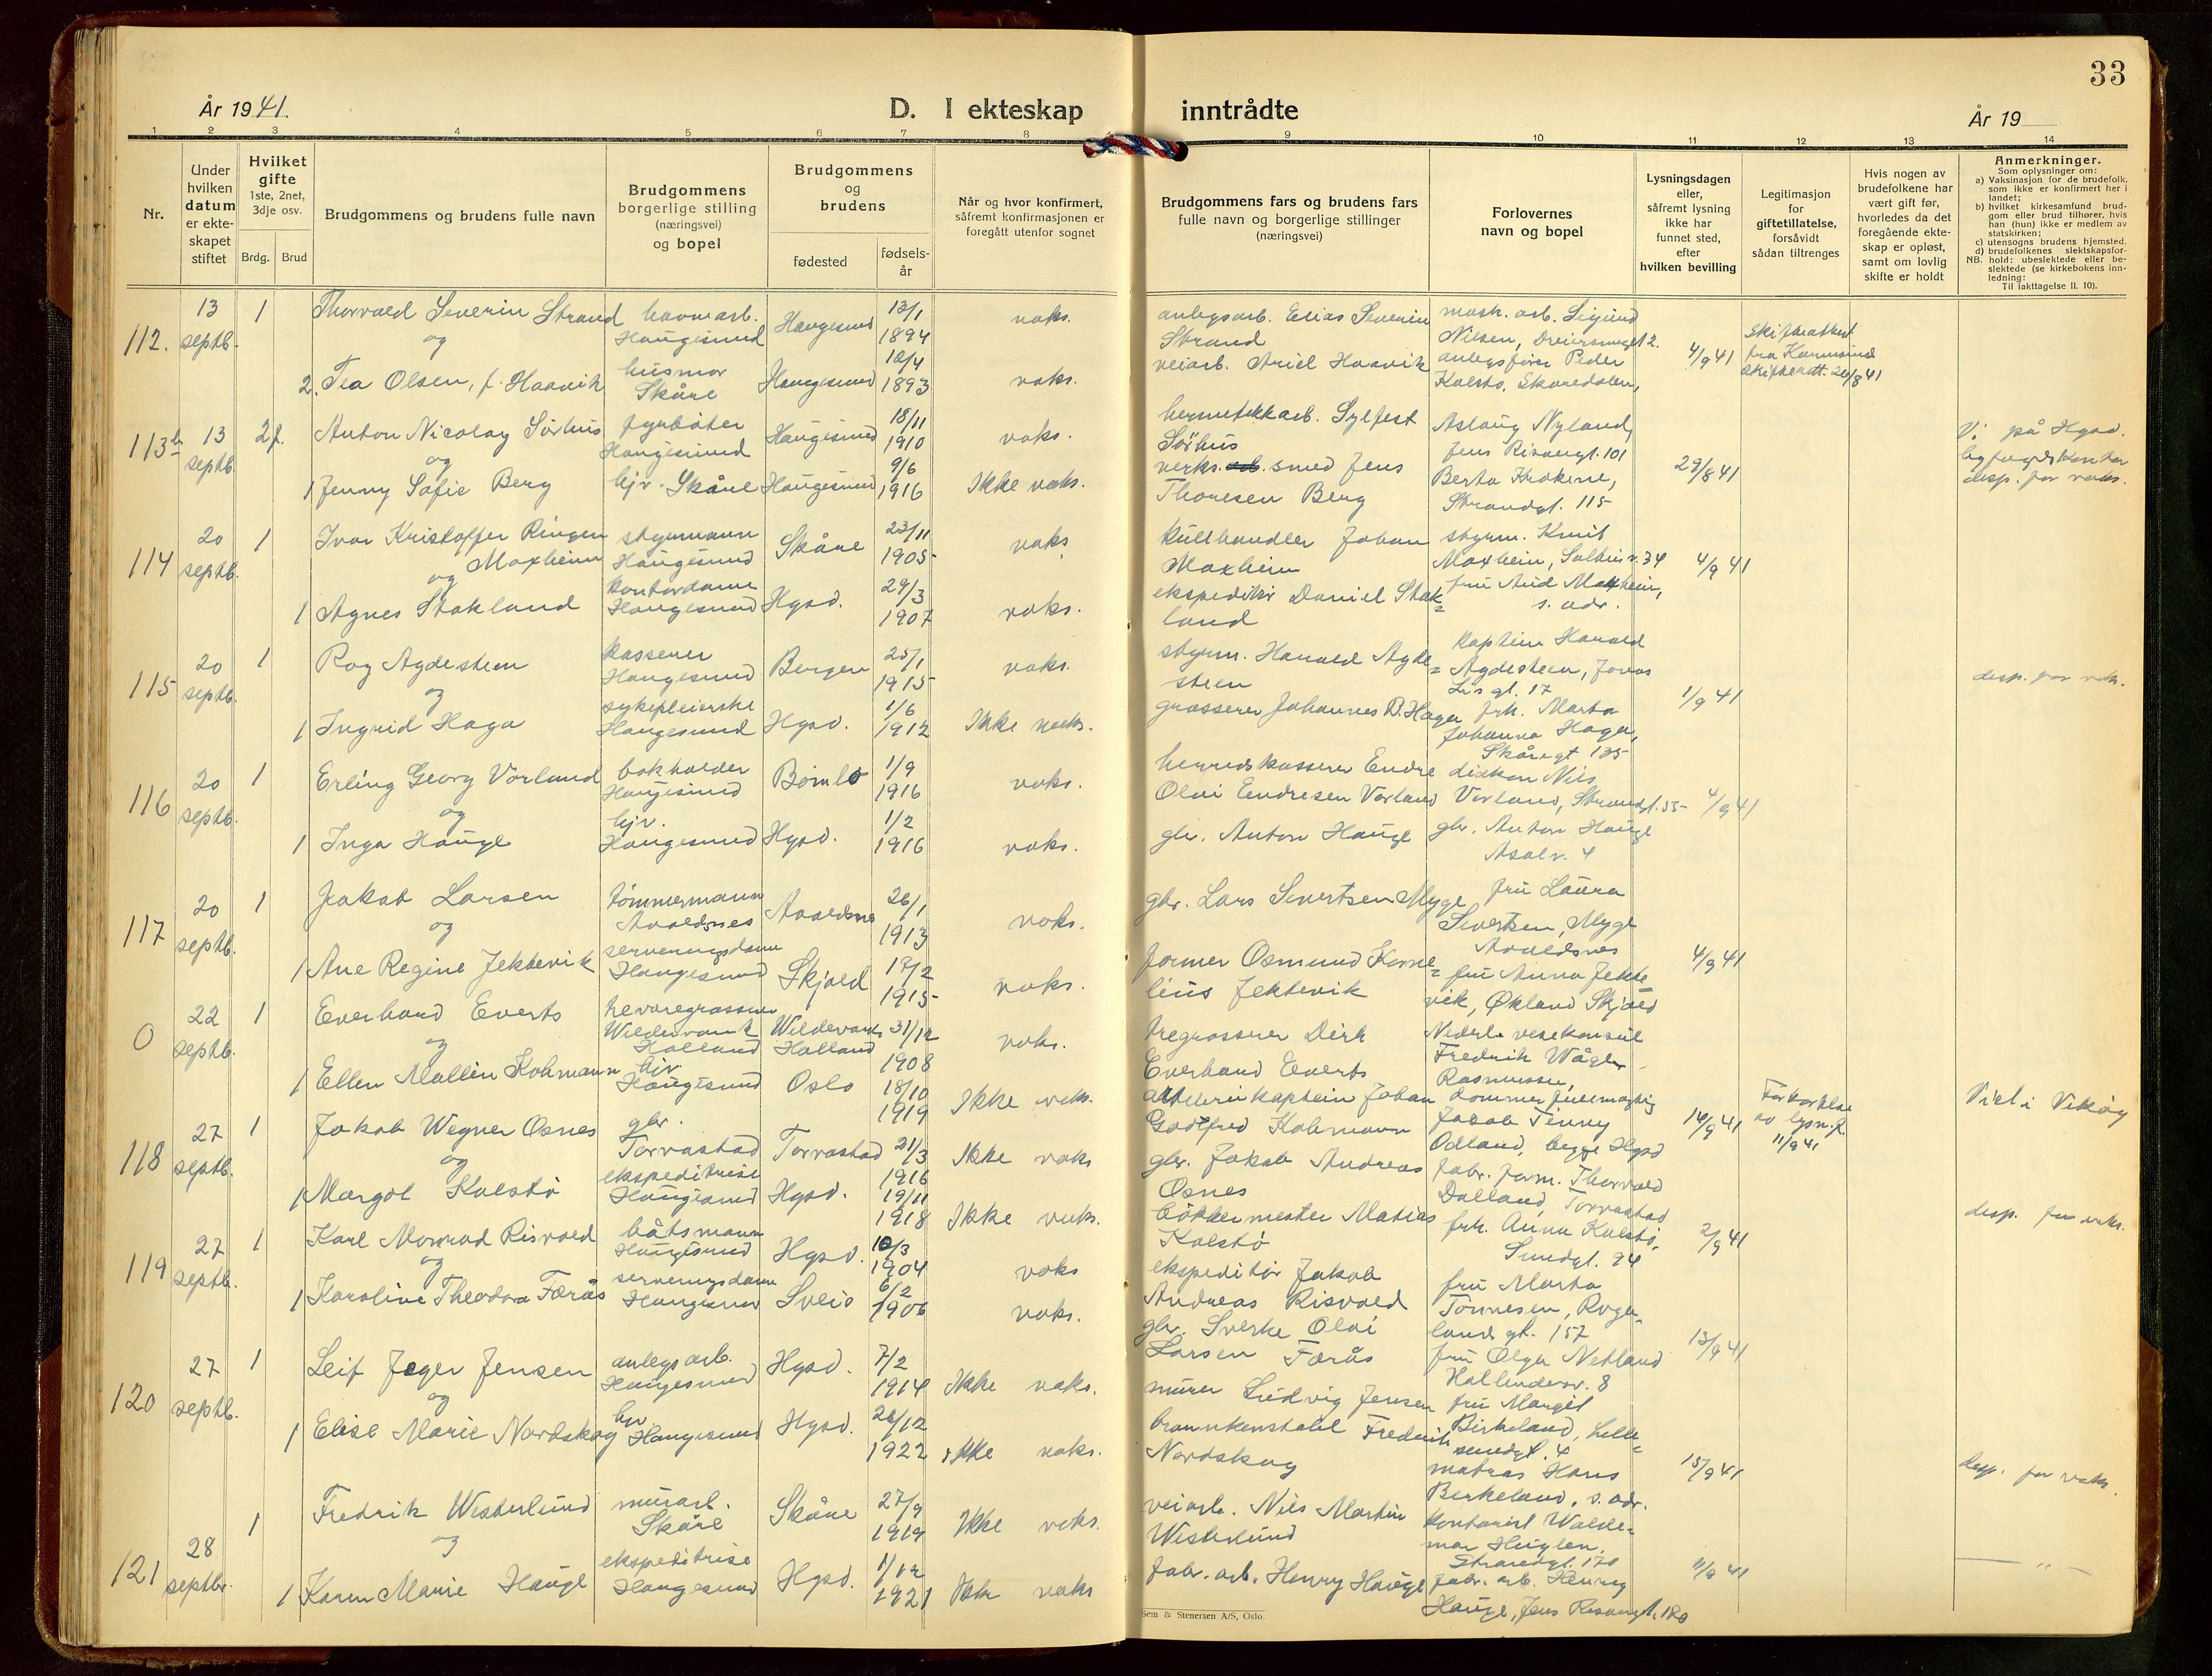 33
År 1941.
D. I ekteskap inntrådte
År 19
1 2 3 4 5 6 7 8 9 10 11 12 13 14
Nr.
Under hvilken datum er ekte-skapet stiftet
Hvilket gifte 1ste, 2net, 3dje osv.
Brdg. Brud
Brudgommens og brudens fulle navn
Brudgommens borgerlige stilling (næringsvei) og bopel
Brudgommens og brudens
fødested
fødsels-år
Når og hvor konfirmert, såfremt konfirmasjonen er foregått utenfor sognet
Brudgommens fars og brudens fars fulle navn og borgerlige stillinger (næringsvei)
Forlovernes navn og bopel
Lysningsdagen eller, såfremt lysning ikke har funnet sted, efter hvilken bevilling
Legitimasjon for giftetillatelse, forsåvidt sådan tiltrenges
Hvis nogen av brudefolkene har vært gift før, hvorledes da det foregående ekte-skap er opløst, samt om lovlig skifte er holdt
Anmerkninger.
Som oplysninger om:
a) Vaksinasjon for de brudefolk, som ikke er konfirmert her i landet;
b) hvilket kirkesamfund brud-gom eller brud tilhører, hvis han (hun) ikke er medlem av statskirken;
c) utensogns brudens hjemsted.
d) brudefolkenes slektskapsfor-hold: ubeslektede eller be-slektede (se kirkebokens inn-ledning:
NB.
Til iakttagelse II. 10).
112. 13 septb. 1 Thorvald Severin Strand havnearb. Haugesund Haugesund 13/1 1894 vaks. anlegsarb. Elias Severin Strand mask. arb. Sigurd Nilsen,
og
2. Tea Olsen, f. Haavik husmor Skåre Haugesund 12/4 1893 vaks. veiarb. Haavik anlegsfører Peder Kolstø, Skåredalen, 4/9 41 Skifteattest fra Karmsund skifterett. 26/8 41
113 13 septb. 2 f. Anton Nicolay Sørhus fyrbøter Haugesund Haugesund 18/11 1910 vaks. hermetikkarb. Sylfest Sørhus Aslaug Nyland, Jens Risøengt. 101
og
1 Jenny Sofie Berg hjv. Skåre Haugesund 9/6 1916 Ikke vaks. verks. smed Jens Thoresen Berg Berta Krokene, Strandgt. 115 29/8 41 V. på Hgsd. byfogdskontor desp. for vaks.
114 20 septb. 1 Ivar Kristoffer Ringen Moxheim styrmann Haugesund Skåre 23/11 1905 vaks kullhandler Johan Moxheim styrm. Knut Moxheim, 34 4/9 41
og
1 Agnes Stakland kontordame Haugesund Hgsd. 29/3 1907 vaks. ekspeditør Daniel Stak=land fru Aud Moxheim, s. adr.
115 20 septb. 1 Roy Agdesteen kasserer Haugesund Bergen 25/1 1915 vaks. styrm. Harald Agde=steen kaptein Harald Agdesteen, Jonas Lies gt. 17 1/9 41 desp. for vaks.
og
1 Ingrid Haga sykepleierske Haugesund Hgsd. 1/6 1912 Ikke vaks. grosserer Johannes B. Haga frk. Marta Johanna Haga, Skåregt 125
116 20 septb. 1 Erling Georg Vorland bokholder Haugesund Bømlo 1/9 1916 vaks. herredskasserer Endre Olai Endresen Vorland diakon Nils Vorland, Strandgt. 55 4/9 41
og
1 Inga Hauge hjv. Haugesund Hgsd. 1/2 1916 vaks. gbr. Anton Hauge gbr. Anton Hauge Asalv. 4
117 20 septb. 1 Jakob Larsen tømmermann Avaldsnes Avaldsnes 26/1 1913 vaks. gbr. Lars Sivertsen Myge fru Laura Sivertsen, Myge Avaldsnes 4/9 41
og
1 Ane Regine Jektevik serveringsdame Haugesund Skjold 17/2 1915 vaks. former Osmund Korne=lius Jektevik fru Anna Jekte=vik, Økland Skjold
0 22 septb. 1 Everhard Everts trevaregrosserer Wildervank Holland Wildervank Holland 31/12 1908 vaks. tregrosserer Dirk Everhard Everts Nederl. visekonsul Fredrik Wågen Rasmussen,
og
1 Ellen Mallin Kohmann hjv. Haugesund Oslo 18/10 1919 Ikke vaks. artillerikaptein Johan Godtfred Kohmann dommerfullmektig Jakob Tinny Odland, begge Hgsd 16/9 41 11/9 41 Viet i Vikøy
118 27 septb. 1 Jakob Wegner Osnes gbr. Torvastad Torvastad 21/3 1916 Ikke vaks gbr. Jakob Andreas Osnes fabr. form. Thorvald Dalland, Torvastad
og
1 Margot Kolstø ekspeditrise Haugesund Hgsd. 19/11 1918 Ikke vaks. bøkkermester Matias Kolstø frk. Anna Kolstø, Sundgt. 94 2/9 41 desp. for vaks.
119 27 septb. 1 Karl Monrad Risvold båtsmann Haugesund Hgsd. 10/3 1904 vaks ekspeditør Jakob Andreas Risvold fru Marta Tønnesen, Roga=landsgt. 157 13/9 41
og
1 Karoline Theodora Færås serveringsdame Haugesund Sveio 6/2 1906 vaks. gbr. Sverke Olai Larsen Færås fru Olga Netland Hollenderv. 8
120 27 septb. 1 Leif Jeger Jensen anlegsarb. Haugesund Hgsd. 7/2 1914 Ikke vaks. murer Ludvig Jensen fru Margit Birkeland, Lille=sundgt. 4 15/9 41 desp. for vaks.
og
1 Elise Marie Nordskog hjv. Haugesund Hgsd. 26/12 1922 ikke vaks. brannkonstabel Fredrik Nordskog matros Hans Birkeland, s. adr.
121 28 septbr. 1 Fredrik Westerlund murarb. Skåre Skåre 27/9 1919 Ikke vaks. veiarb. Nils Martin Westerlund kontorist Walde=mar Huglen, Strandgt. 170 41 — " —
og
1 Karen Marie Hauge ekspeditrise Haugesund Hgsd. 1/12 1921 Ikke vaks fabr. arb. Henry Hauge fabr. arb. Henry Hauge, Jens Risøengt. 180
Sem & Stenersen A/S, Oslo.